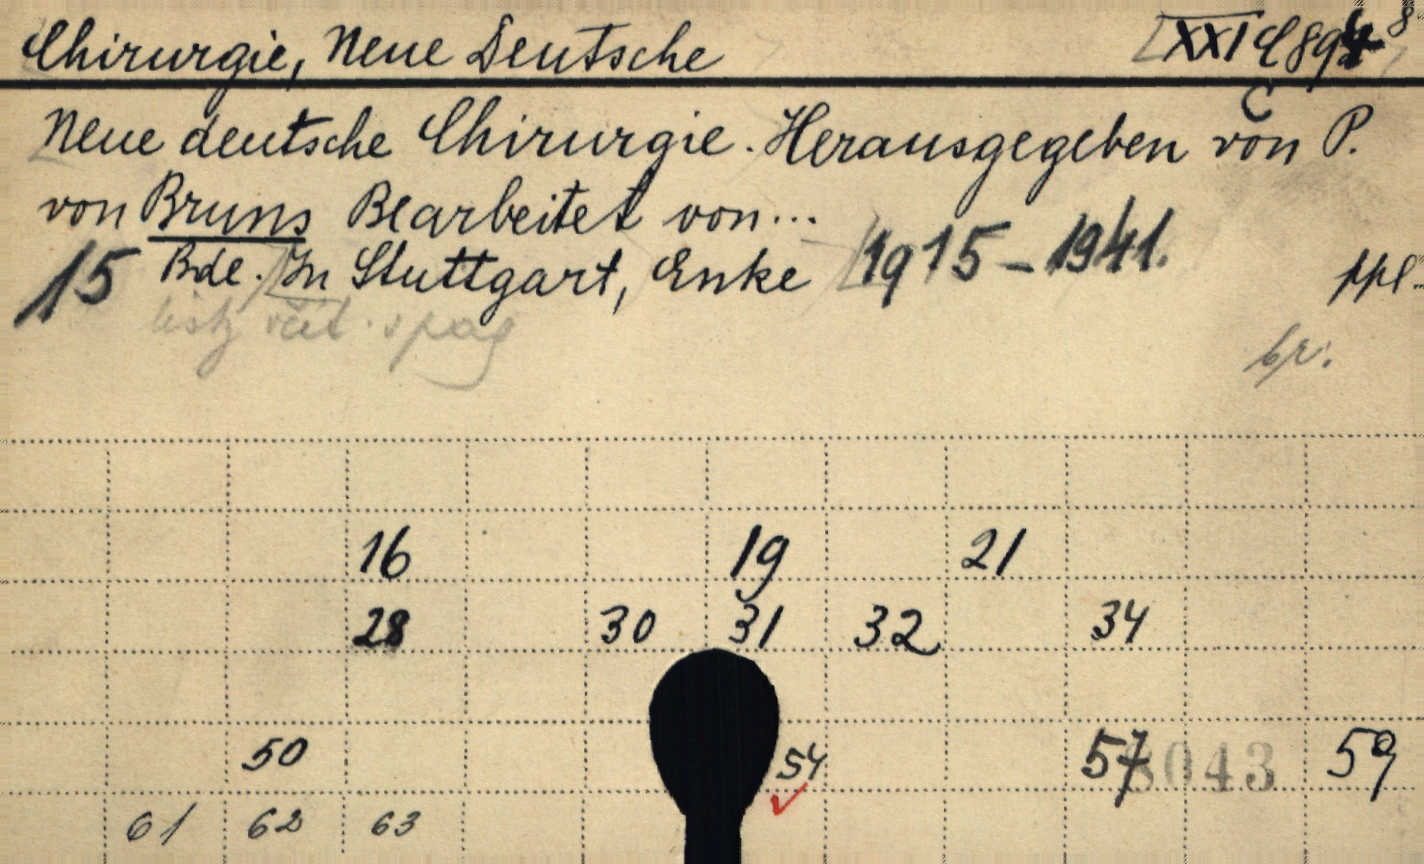 Chirurgie, Neue Deutsche [XXI C 894 8°
C
Neue deutsche Chirurgie. Herausgegeben von P.
von Bruns Bearbeitet von...
15 Bde. In Stuttgart, Enke 1915-1941. ppl..
br.
16 19 21
28 30 31 32 34
50 54 57 8043 59
61 62 63